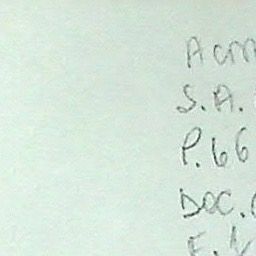 Acm
S.A.
P.66
DOC.